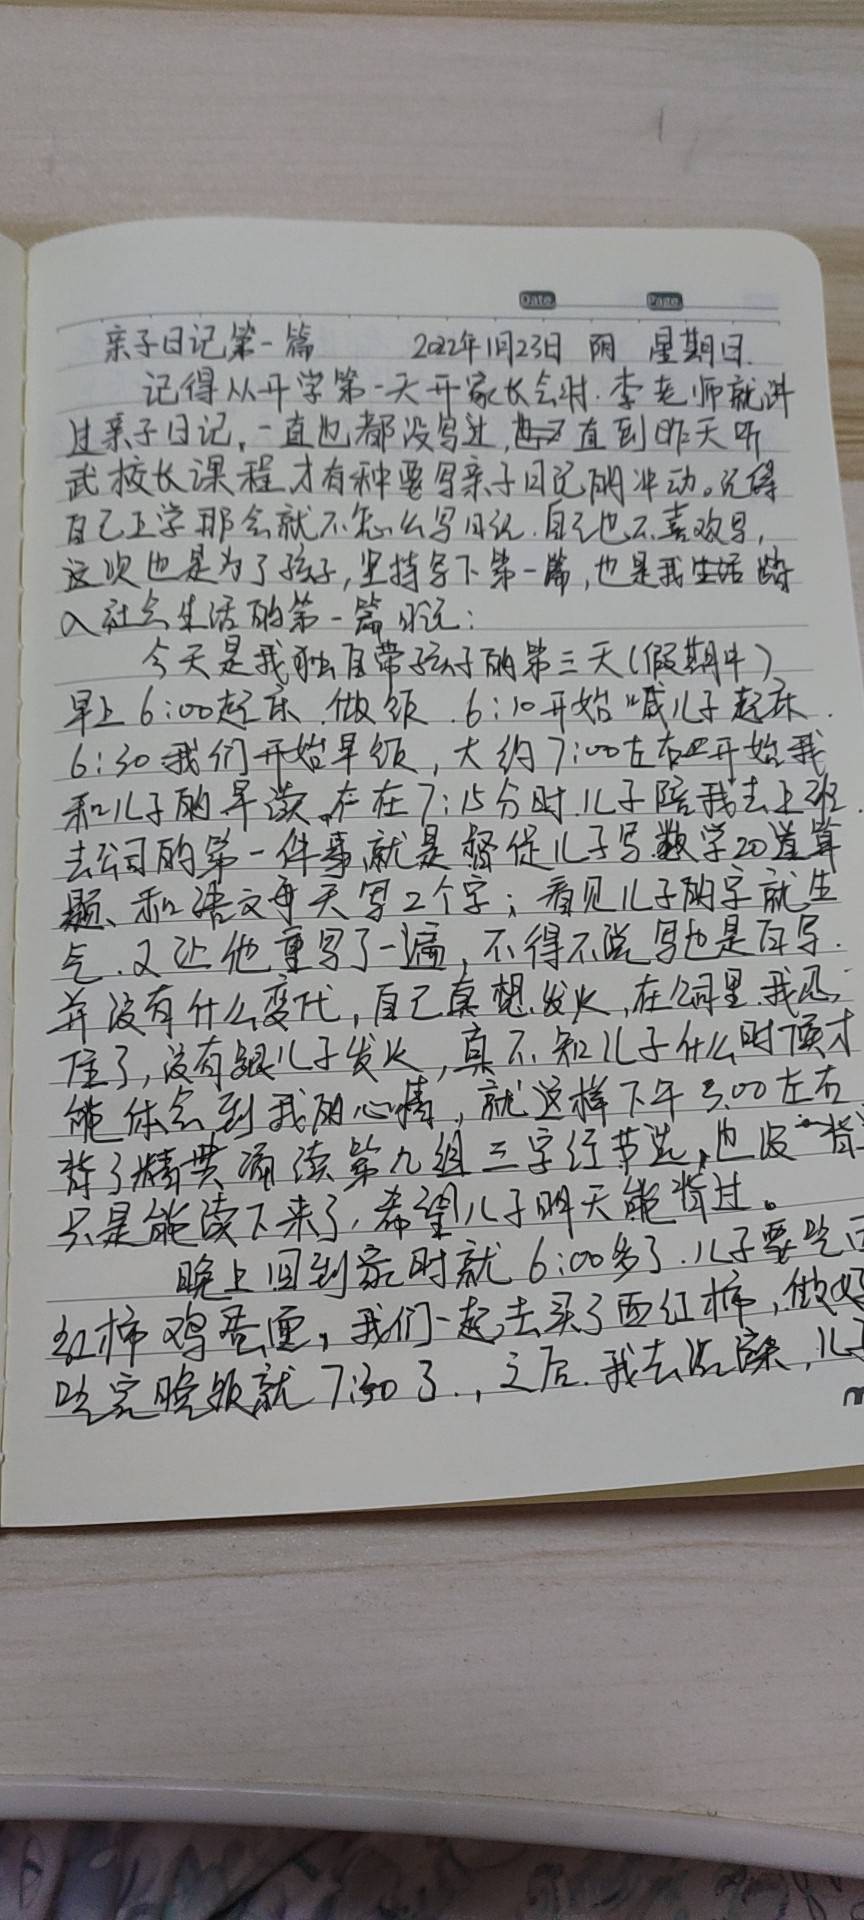 Date Page
亲子日记第一篇 2022年1月23日 阴 星期日.
记得从开学第一天开家长会时.李老师就讲
过亲子日记,一直也都没写过,直到昨天听
武校长课程,才有种要写亲子日记的冲动。记得
自己上学那会就不怎么写日记.自己也不喜欢写,
这次也是为了孩子,坚持写下第一篇,也是我生活踏
入社会生活的第一篇日记:
今天是我独自带孩子的第三天(假期中)
早上6:00起床.做饭.6:10开始喊儿子起床.
6:30我们开始早饭,大约7:00左右开始我
和儿子的早读。在7:15分时.儿子陪我去上班.
去公司的第一件事就是督促儿子写数学20道算
题、和语文每天写2个字;看见儿子的字就生
气.又让他重写了一遍,不得不说写也是白写.
并没有什么变化,自己真想发火,在公司里.我忍
住了,没有跟儿子发火,真不知儿子什么时候才
能体会到我的心情,就这样下午3:00左右
背了精典诵读第九组三字经节选,也没背
只是能读下来了,希望儿子明天能背过。
晚上回到家时就6:00多了.儿子要吃西
红柿鸡蛋面,我们一起去买了西红柿,做好
吃完晚饭就7:30了.,之后.我去洗漱,儿子